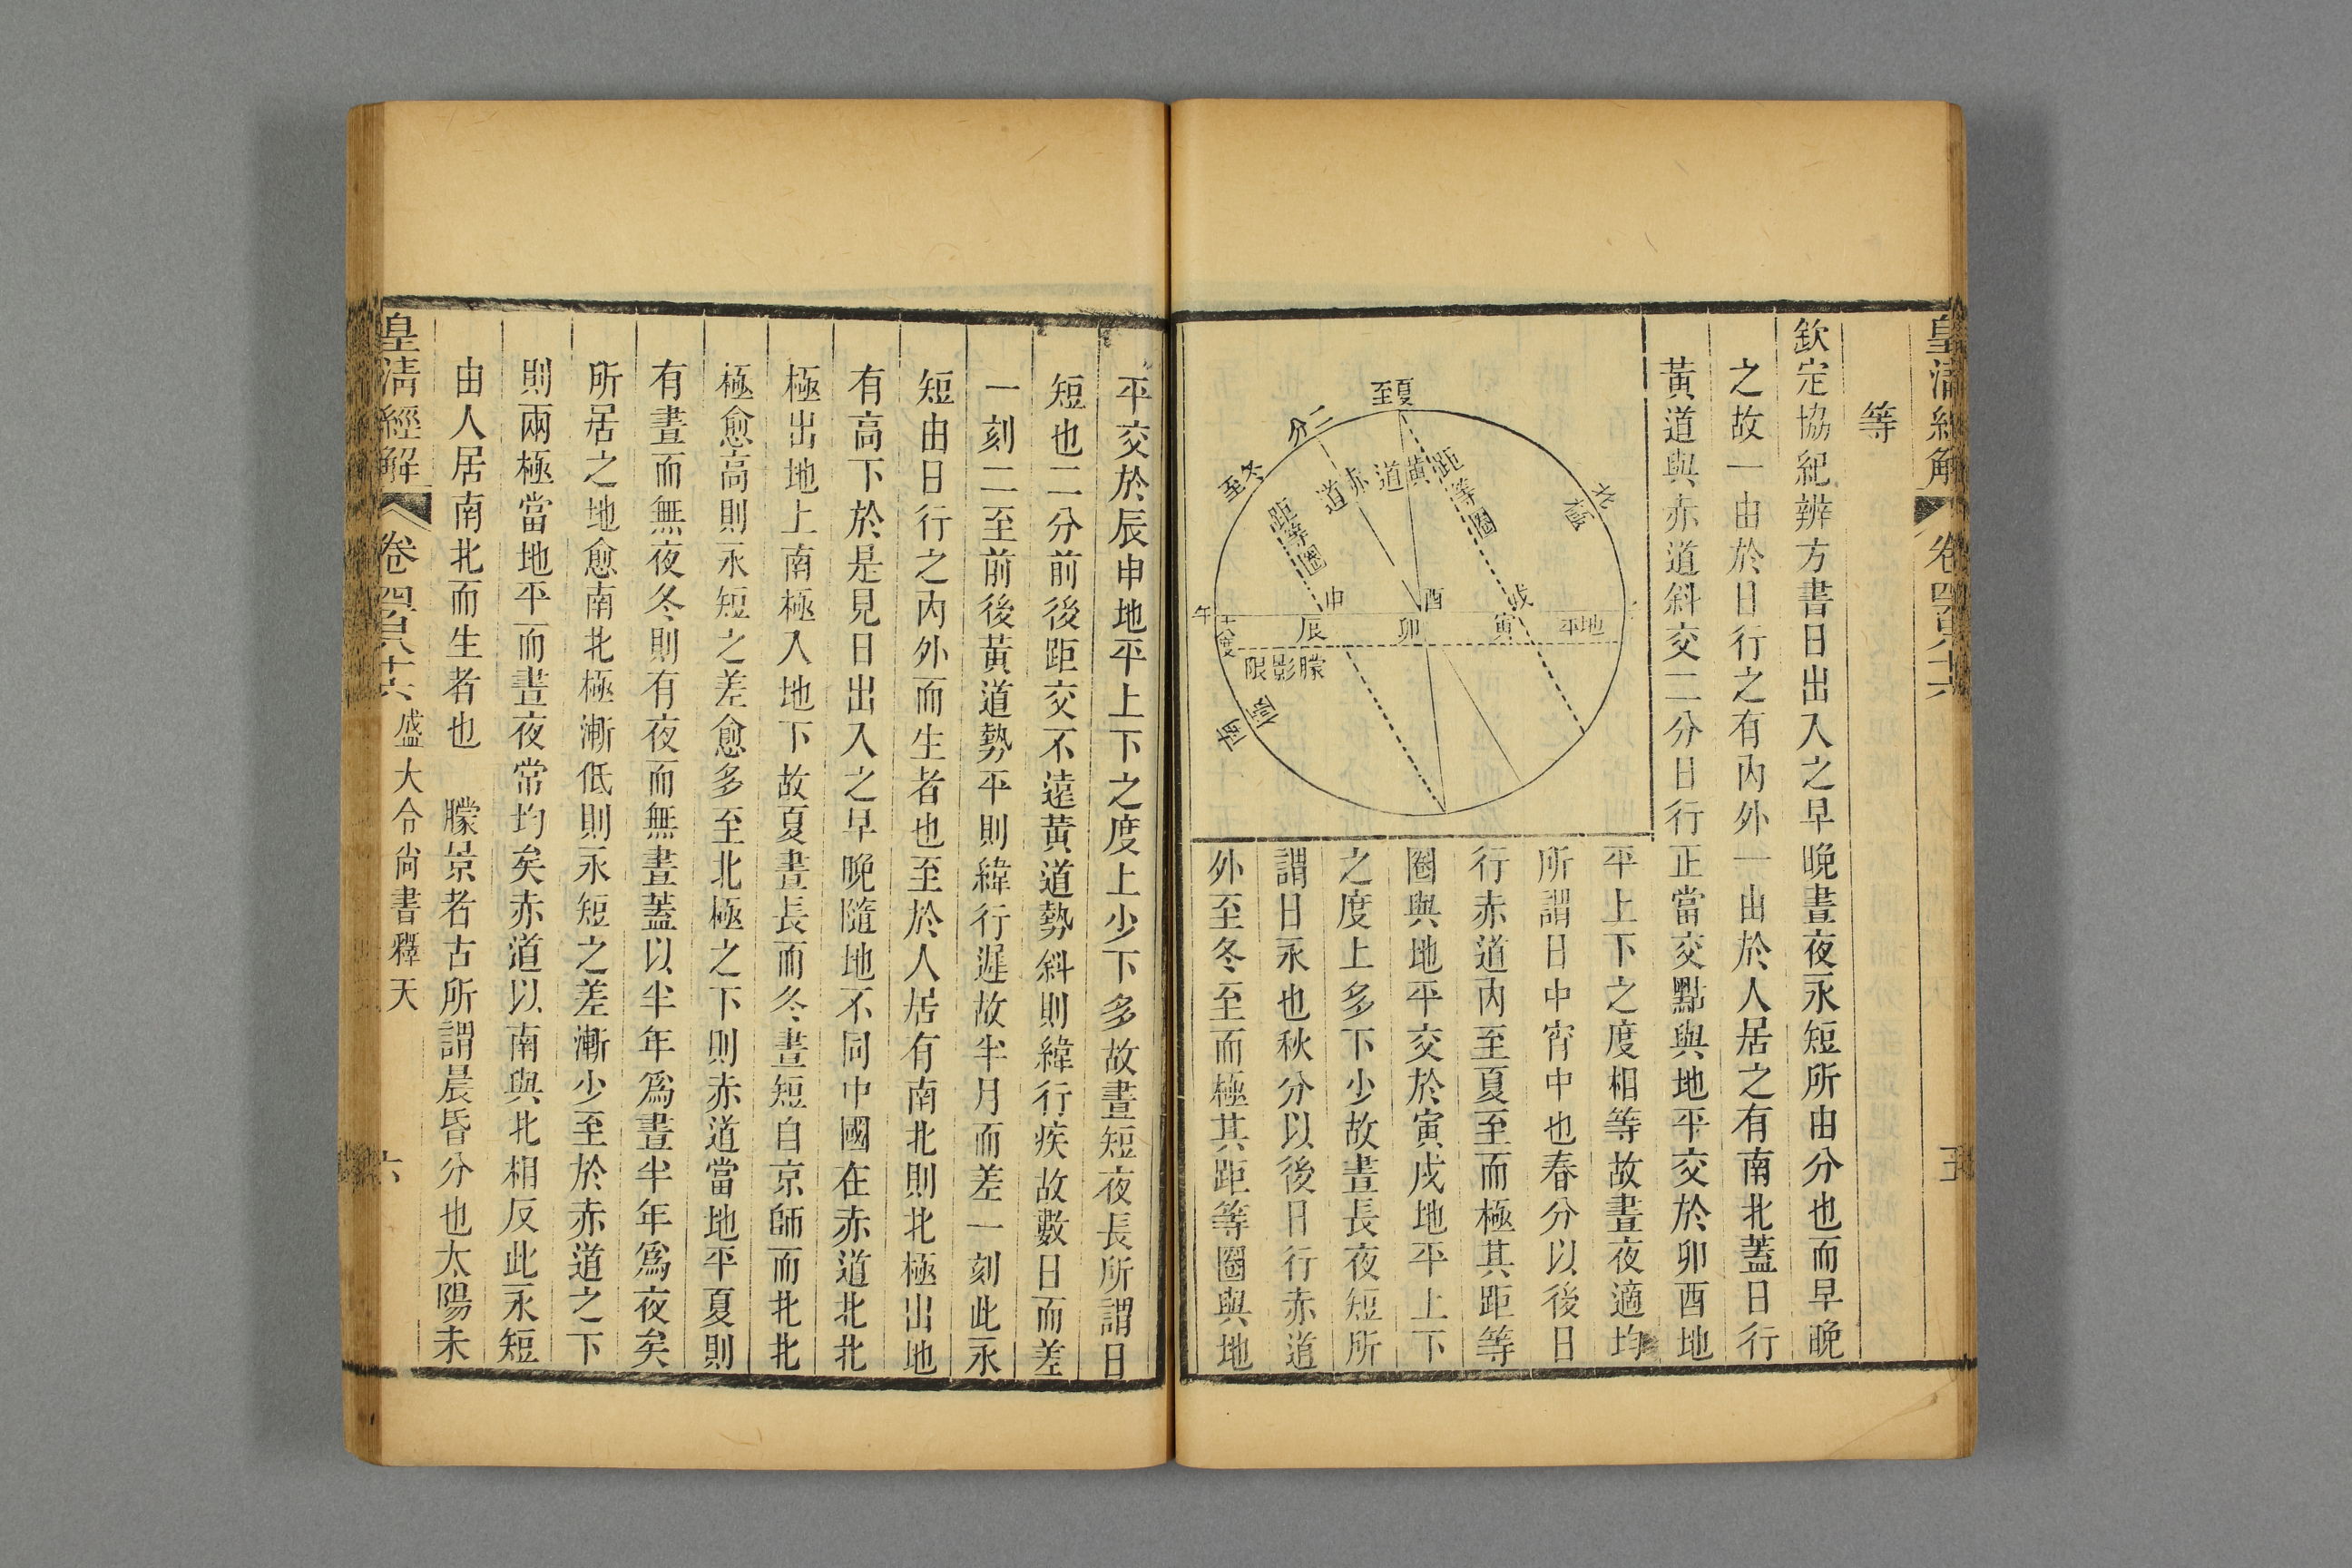 皇清經解
卷四百八十六
五
等
欽定協紀辨方書日出入之早晚晝夜永短所由分也而早晚
之故一由於日行之有內外一由於人居之有南北蓋日行
黃道與赤道斜交二分日行正當交點與地平交於卯酉地
夏至
二分
冬至
北極
距等圈
黃道
赤道
距等圈
戌
酉
申
午
地平
寅
卯
辰
十八度
朦影限
南極
平上下之度相等故晝夜適均
所謂日中宵中也春分以後日
行赤道內至夏至而極其距等
圈與地平交於寅戌地平上下
之度上多下少故晝長夜短所
謂日永也秋分以後日行赤道
外至冬至而極其距等圈與地
平交於辰申地平上下之度上少下多故晝短夜長所謂日
短也二分前後距交不遠黃道勢斜則緯行疾故數日而差
一刻二至前後黃道勢平則緯行遲故半月而差一刻此永
短由日行之內外而生者也至於人居有南北則北極出地
有高下於是見日出入之早晚隨地不同中國在赤道北北
極出地上南極入地下故夏晝長而冬晝短自京師而北北
極愈高則永短之差愈多至北極之下則赤道當地平夏則
有晝而無夜冬則有夜而無晝蓋以半年爲晝半年爲夜矣
所居之地愈南北極漸低則永短之差漸少至於赤道之下
則兩極當地平而晝夜常均矣赤道以南與北相反此永短
由人居南北而生者也　朦景者古所謂晨昏分也太陽未
皇清經解
卷四百八十六
盛大令尚書釋天
六